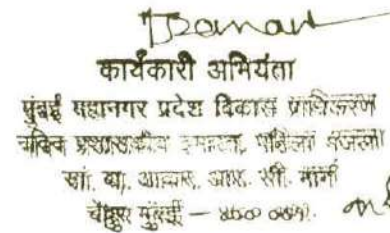 कार्यकारी अभियंता
मुंबई महानगर प्रदेश विकास प्राधिकरण
नविन प्रशासकीय इमारत, पहिला मजला
सां. बा. आवार, आर. सी. मार्ग
चेंबुर मुंबई –